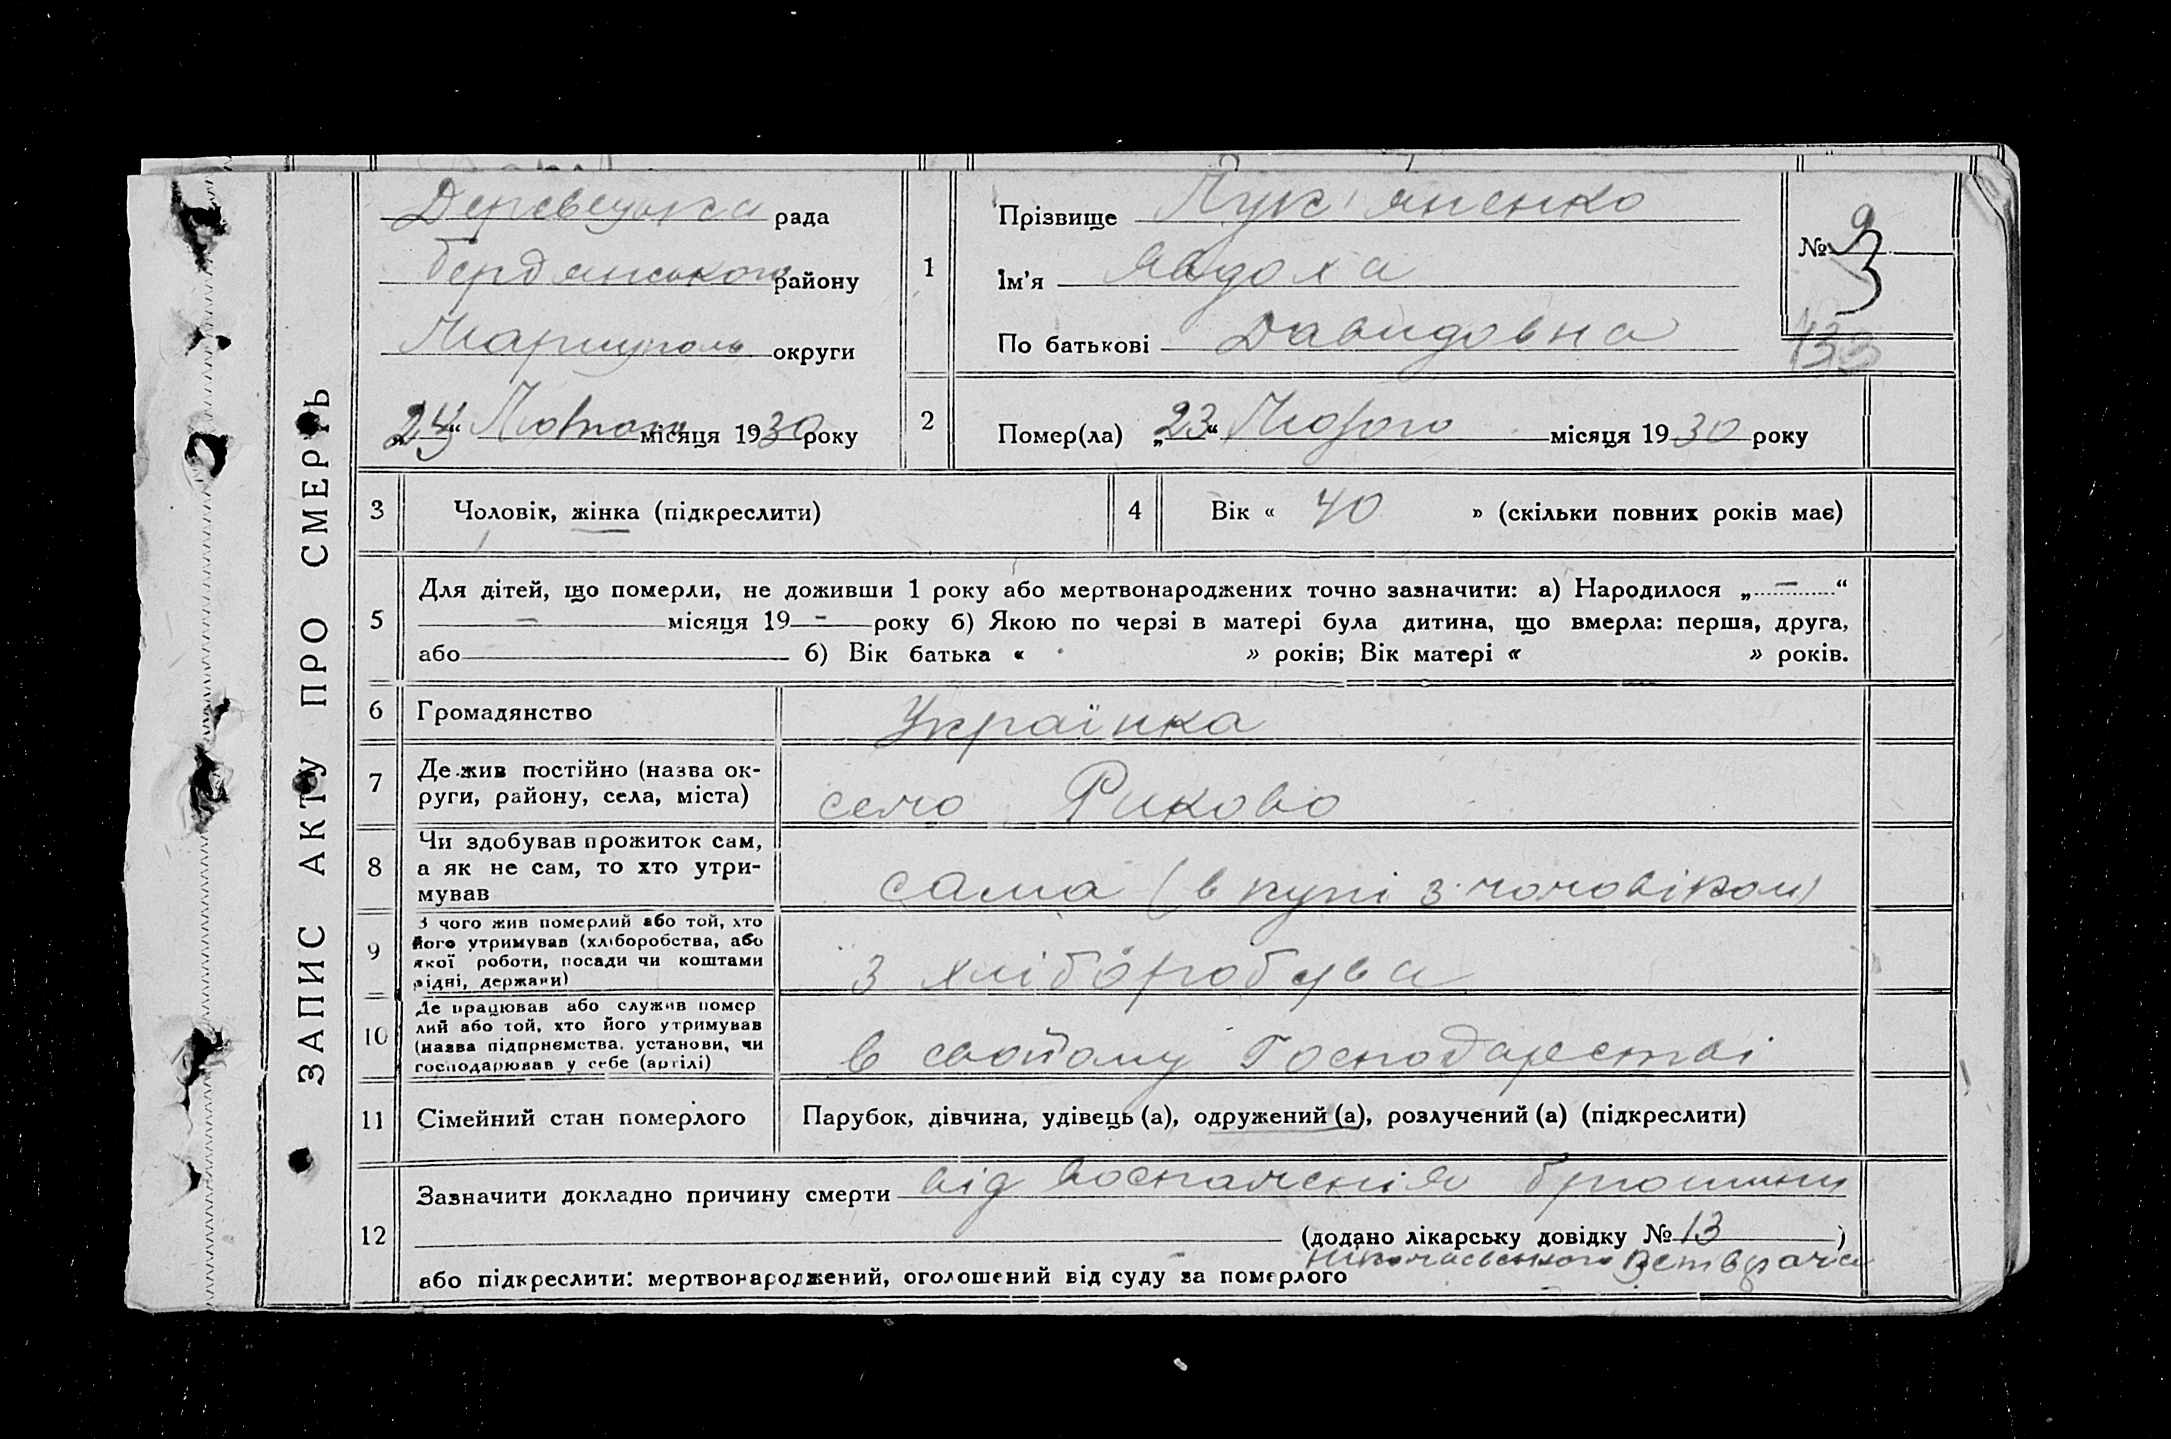 ЗАПИС АКТУ ПРО СМЕРТЬ
Деревецька рада
Бердянського району
Маріуполь округи
24 Лютого місяця 1930 року
1
Прізвище Лук'яненко
Ім'я Явдоха
По батькові Давидовна
№ 3
133
2
Помер(ла) „23“ Лютого місяця 1930 року
3 Чоловік, жінка (підкреслити)
4 Вік « 40 » (скільки повних років має)
5
Для дітей, що померли, не доживши 1 року або мертвонароджених точно зазначити: а) Народилося „ — “
— місяця 19 — року б) Якою по черзі в матері була дитина, що вмерла: перша, друга,
або б) Вік батька « » років; Вік матері « » років.
6 Громадянство Українка
7 Де жив постійно (назва ок-
руги, району, села, міста) село Риково
8 Чи здобував прожиток сам,
а як не сам, то хто утри-
мував сама (в купі з чоловіком)
9 З чого жив померлий або той, хто
його утримував (хліборобства, або
якої роботи, посади чи коштами
рідні, держави) З хліборобства
10 Де працював або служив помер
лий або той, хто його утримував
(назва підприємства, установи, чи
господарював у себе (артілі) в свойому Господарстві
11 Сімейний стан померлого Парубок, дівчина, удівець (а), одружений (а), розлучений (а) (підкреслити)
12
Зазначити докладно причину смерти від воспаленія брюшини
(додано лікарську довідку № 13 )
або підкреслити: мертвонароджений, оголошений від суду за померлого